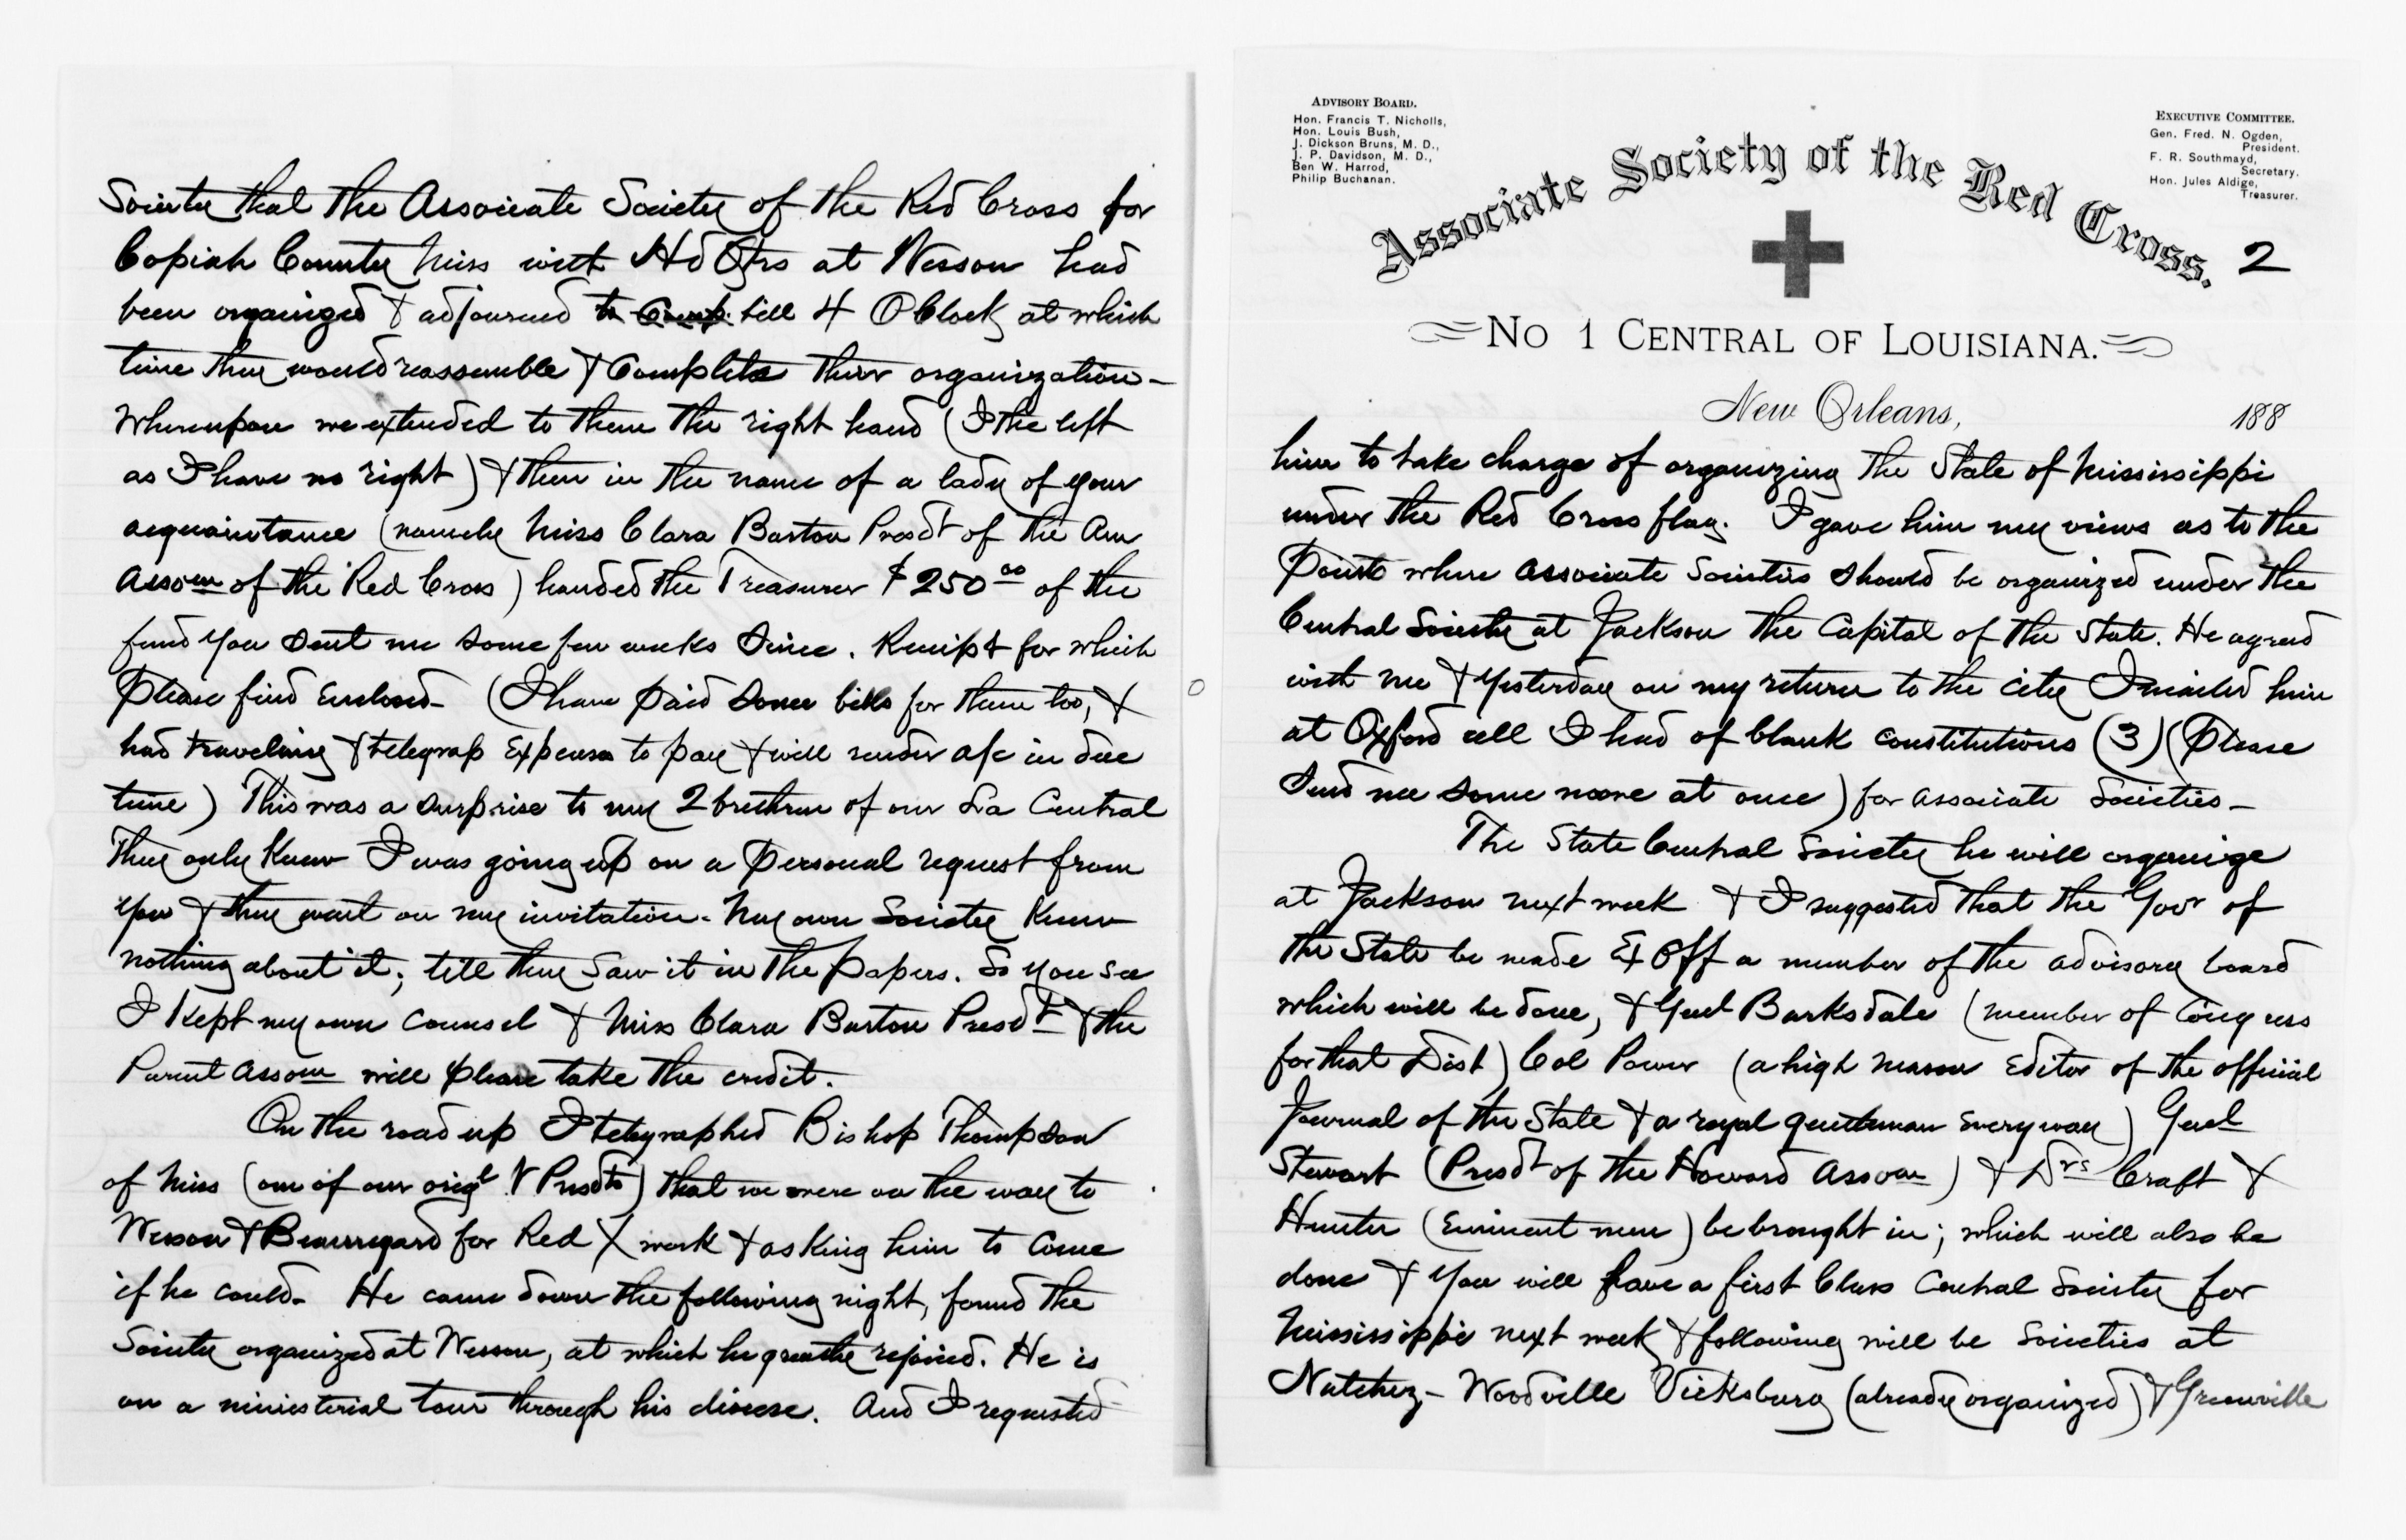 Society that the Associate Society of the Red Cross for
Copiah County Miss with Hd Qtrs at Wesson had
been organized & adjourned to Comp till 4 O Clock at which
time they would reassemble & Complete their organization –
Whereupon we extended to them the right hand (I the left
as I have no right) & then in the name of a lady of your
acquaintance (namely Miss Clara Barton Presdt of the Am
Assocn of the Red Cross) handed the Treasurer $250 00 of the
fund you sent me some few weeks since. Receipt for which
Please find Enclosed – (I have paid some bills for them too, &
had traveling & telegrap Expenses to pay & will render a/c in due
time) This was a surprise to my 2 brethren of our La Central
They only Knew I was going up on a Personal request from
you & they went on my invitation – My own Society Knew
nothing about it; till they Saw it in the Papers. So you see
I Kept my own Counsel & Miss Clara Barton Presdt & the
Parent Assocn will please take the credit.
On the road up I telegraphed Bishop Thompson
of Miss (one of our origl V Presdts) that we were on the way to
Wesson & Beauregard for Red X work & asking him to Come
if he could – He came down the following night, found the
Society organized at Wesson, at which he greatly rejoiced. He is
on a ministerial tour through his diocese. And I requested
ADVISORY BOARD.
Hon. Francis T. Nicholls,
Hon. Louis Bush,
J. Dickson Bruns, M. D.,
J. P. Davidson, M. D.,
Ben W. Harrod,
Philip Buchanan.
EXECUTIVE COMMITTEE.
Gen. Fred. N. Ogden,
President.
F. R. Southmayd,
Secretary.
Hon. Jules Aldige,
Treasurer.
Associate Society of the Red Cross.
2
No 1 CENTRAL OF LOUISIANA.
New Orleans, 188
him to take charge of organizing the State of Mississippi
under the Red Cross flag. I gave him my views as to the
Points where Associate Societies should be organized under the
Central Society at Jackson the Capital of the State. He agreed
with me & yesterday on my return to the city I mailed him
at Oxford all I had of blank Constitutions (3) (Please
Send me some more at once) for Associate Societies –
The State Central Society he will organize
at Jackson next week & I suggested that the Govr of
the State be made Ex Off a member of the advisory board
which will be done, & Genl Barksdale (member of Congress
for that Dist) Col Power (a high mason Editor of the official
Journal of the State & a royal gentleman every way) Genl
Stewart (Presdt of the Howard Assocn) & Drs Craft &
Hunter (Eminent men) be brought in; which will also be
done & you will have a first Class Central Society for
Mississippi next week & following will be Societies at
Natchez – Woodville Vicksburg (already organized) & Greenville